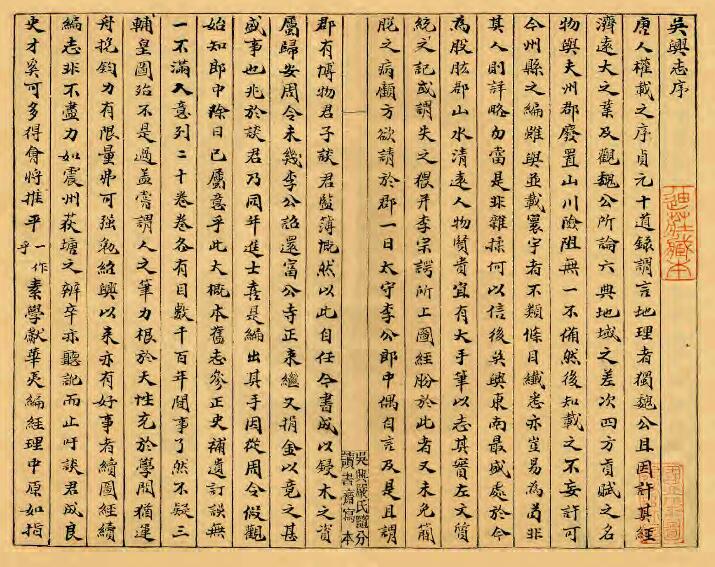 吳興志序
唐人權載之序貞元十道錄謂言地理者獨魏公且因許其經
濟遠大之業及觀魏公所論六典地域之差次四方貢賦之名
物與夫州郡廢置山川險阻無一不備然後知載之不妄許可
今州縣之編雖與並載寰宇者不類條目纖悉亦豈易為茍非
其人則詳略勿當是非雜揉何以信後吳興東南最盛處於今
為股肱郡山水清遠人物賢貴宜有大手筆以志其實左文質
統之記或謂失之猥并李宗諤所上圖經昉於此者又未免簡
脫之病顧方欲請於郡一日太守李公郎中偶自言及是且謂
郡有博物君子談君監簿慨然以此自任今書成以鋟木之資
屬歸安周令未幾李公詔還富公寺正來繼又捐金以竟之甚
盛事也兆於談君乃同年進士喜是編出其手因從周令假觀
始知郎中除日已屬意乎此大概本舊志參正史補遺訂誤無
一不滿人意列二十卷卷各有目數千百年間事了然不疑三
輔皇圖殆不是過蓋嘗謂人之筆力根於天性充於學問猶運
舟挽鈞力有限量弗可强勉紹興以來亦有好事者續圖經續
編志非不盡力如震州荻塘之辨卒亦聽訛而止吁談君成良
史才奚可多得會將推平一作乎素學獻華夷編經理中原如指
吳興嚴氏隨分讀書齋寫本